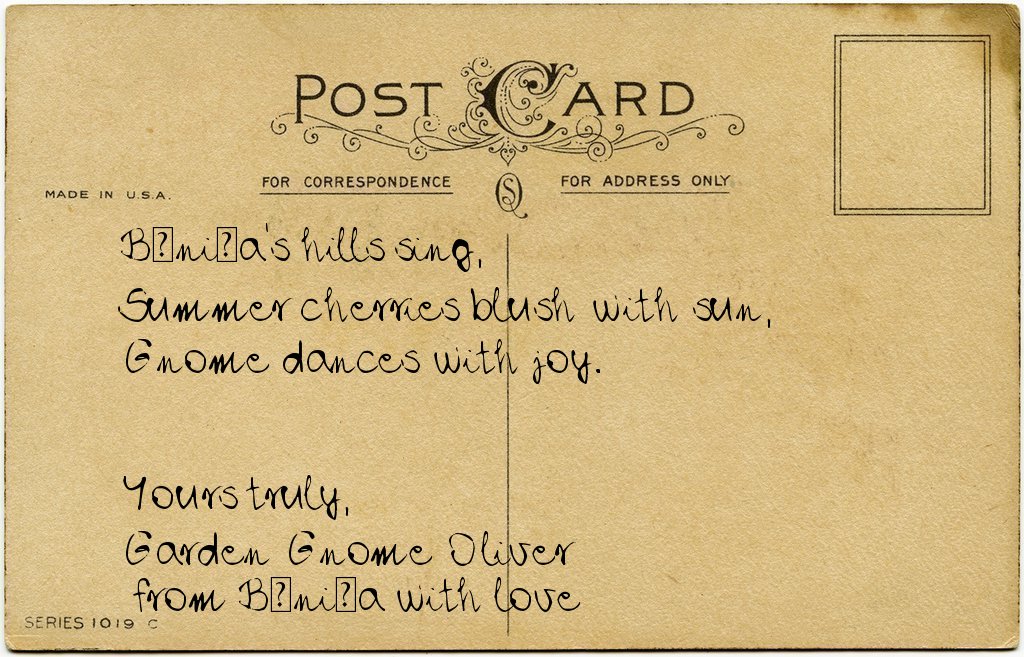 POST CARD
FOR CORRESPONDENCE
FOR ADDRESS ONLY
MADE IN U.S.A.
hills sing,
Summer cherries blush with sun,
Gnome dances with joy.
Yours truly,
Garden Gnome Oliver
from with love
SERIES 1019 C